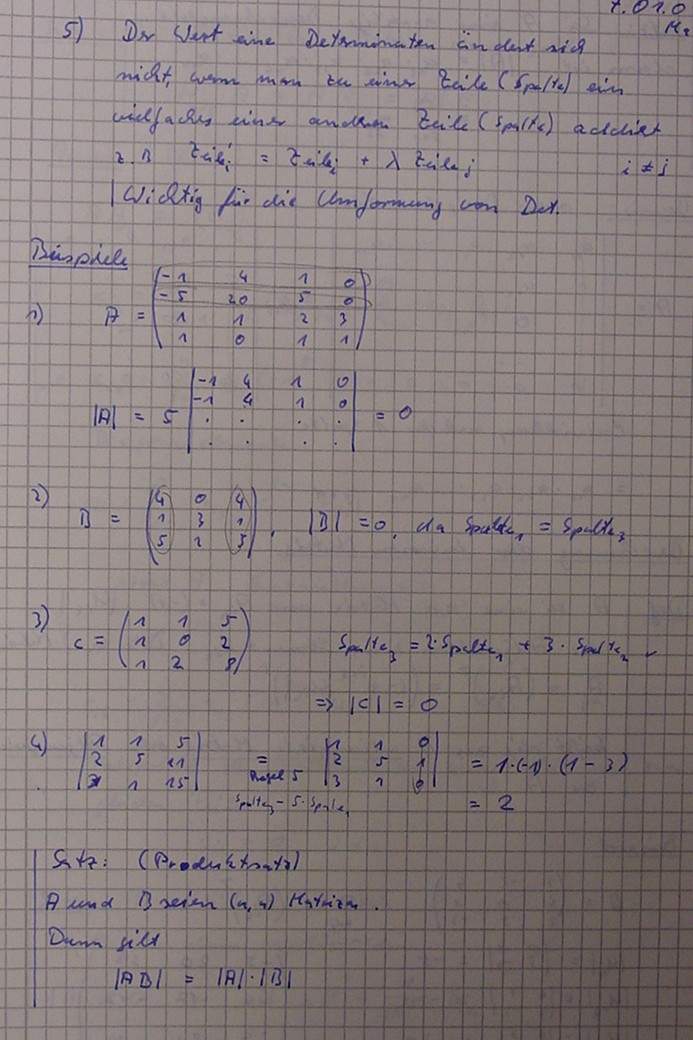 7.01.0
M2
5) Der Wert eine Determinanten ändert sich
nicht, wenn man zu einer Zeile (Spalte) ein
vielfaches einer anderen Zeile (Spalte) addiert
z.B Zeile'ᵢ = Zeileᵢ + λ Zeileⱼ i ≠ j
Wichtig für die Umformung von Det.
Beispiele
-1 4 1 0
-5 20 5 0
1) A =
1 1 2 3
1 0 1 1
-1 4 1 0
-1 4 1 0
|A| = 5 = 0
. . . .
. . . .
2)
4 0 4
B = 1 3 1 , |B| = 0, da Spalte₁ = Spalte₃
5 2 5
3)
1 1 5
C = 1 0 2 Spalte₃ = 2·Spalte₁ + 3·Spalte₂
1 2 8
=> |C| = 0
4) 1 1 5 = 1 1 0 = 1·(-1)·(1-3)
2 5 11 Regel 5 2 5 1
3 1 15 3 1 0
Spalte₃ - 5·Spalte₁ = 2
Satz: (Produktsatz)
A und B seien (n,n) Matrizen.
Dann gilt
|AB| = |A|·|B|